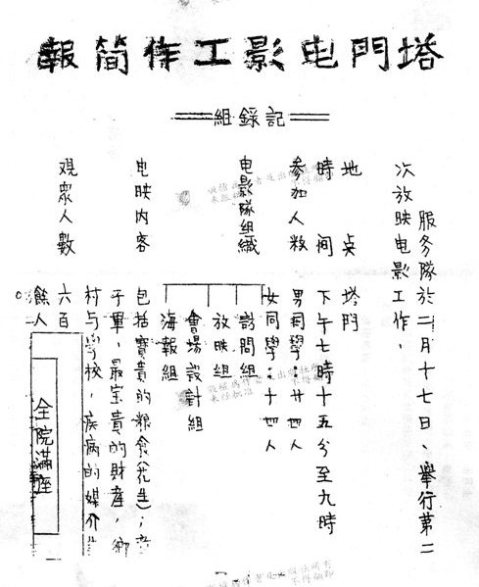 塔門电影工作简報
記錄組
服务隊於二月十七日、舉行第二
次放映电影工作.
地点 塔門
時間 下午七時十五分至九時
参加人数 男同學:廿四人
女同學:十四人
电影隊組織 訪問組
放映組
會場設計組
海報組
电映内容 包括寶貴的粮食(花生);
子單,最宝貴的財産,鄉
村与學校,疾病的媒介
观衆人數 六百
餘人。
全院滿座